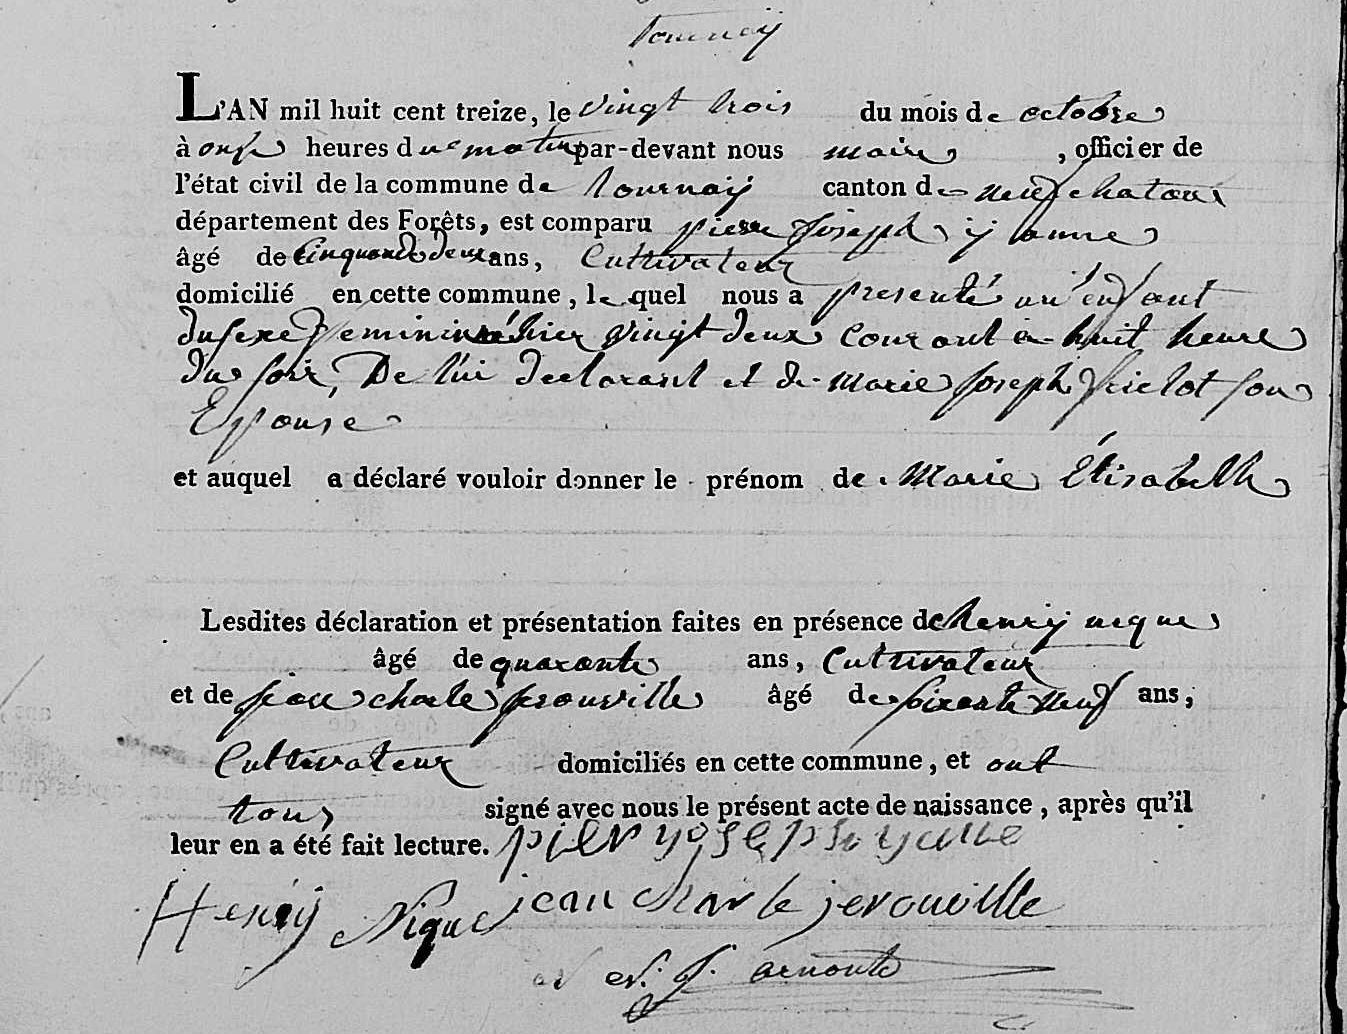 tournay
L'AN mil huit cent treize, le vingt trois du mois de octobre
à onse heures du matin par-devant nous maire , officier de
l'état civil de la commune de tournay canton de neufchatoux
département des Forêts, est comparu pierre Joseph yanne
âgé de Cinquante deux ans, Cultivateur
domicilié en cette commune, lequel nous a presenté un enfant
du sexe feminin né hier vingt deux Courant a huit heure
du soir, De lui declarant et de marie Joseph son
Epouse
et auquel a déclaré vouloir donner le prénom de Marie Élisabeth
Lesdites déclaration et présentation faites en présence de henry nique
âgé de quarante ans, Cultivateur
et de jean charle jerouville âgé de soixante neuf ans,
Cultivateur domiciliés en cette commune, et ont
tous signé avec nous le présent acte de naissance, après qu'il
leur en a été fait lecture. pier yoseph yanne
Henry Nique jean charle jerouville
arnould